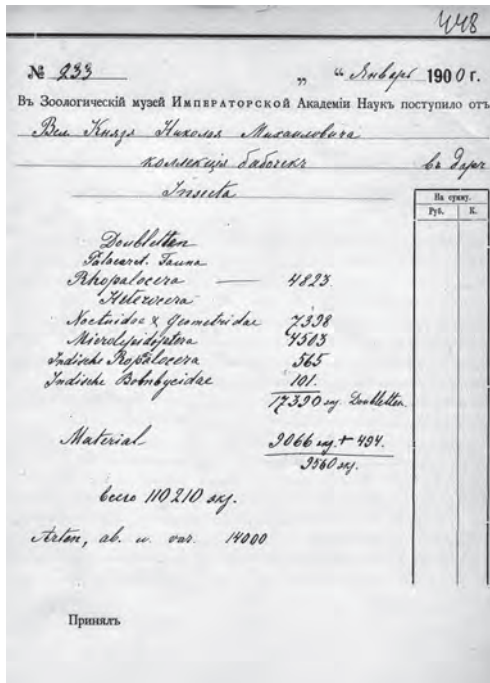 448
№ 233 „ “ Январь 1900 г.
Въ Зоологическій музей Императорской Академіи Наукъ поступило отъ
Вел. Князя Николая Михаиловича
коллекція бабочекъ въ даръ
Insecta
На сумму.
Руб. К.
Doubletten
Palaearct. Fauna
Rhopalocera — 4823.
Heterocera
Noctuidae & Geometridae 7398
Microlepidoptera 4503
Indische Ropalocera 565
Indische Bombycidae 101.
17390 экз. Doubletten.
Material 9066 экз. + 494.
9560 экз.
всего 110210 экз.
Arten, ab. u. var. 14000
Принялъ